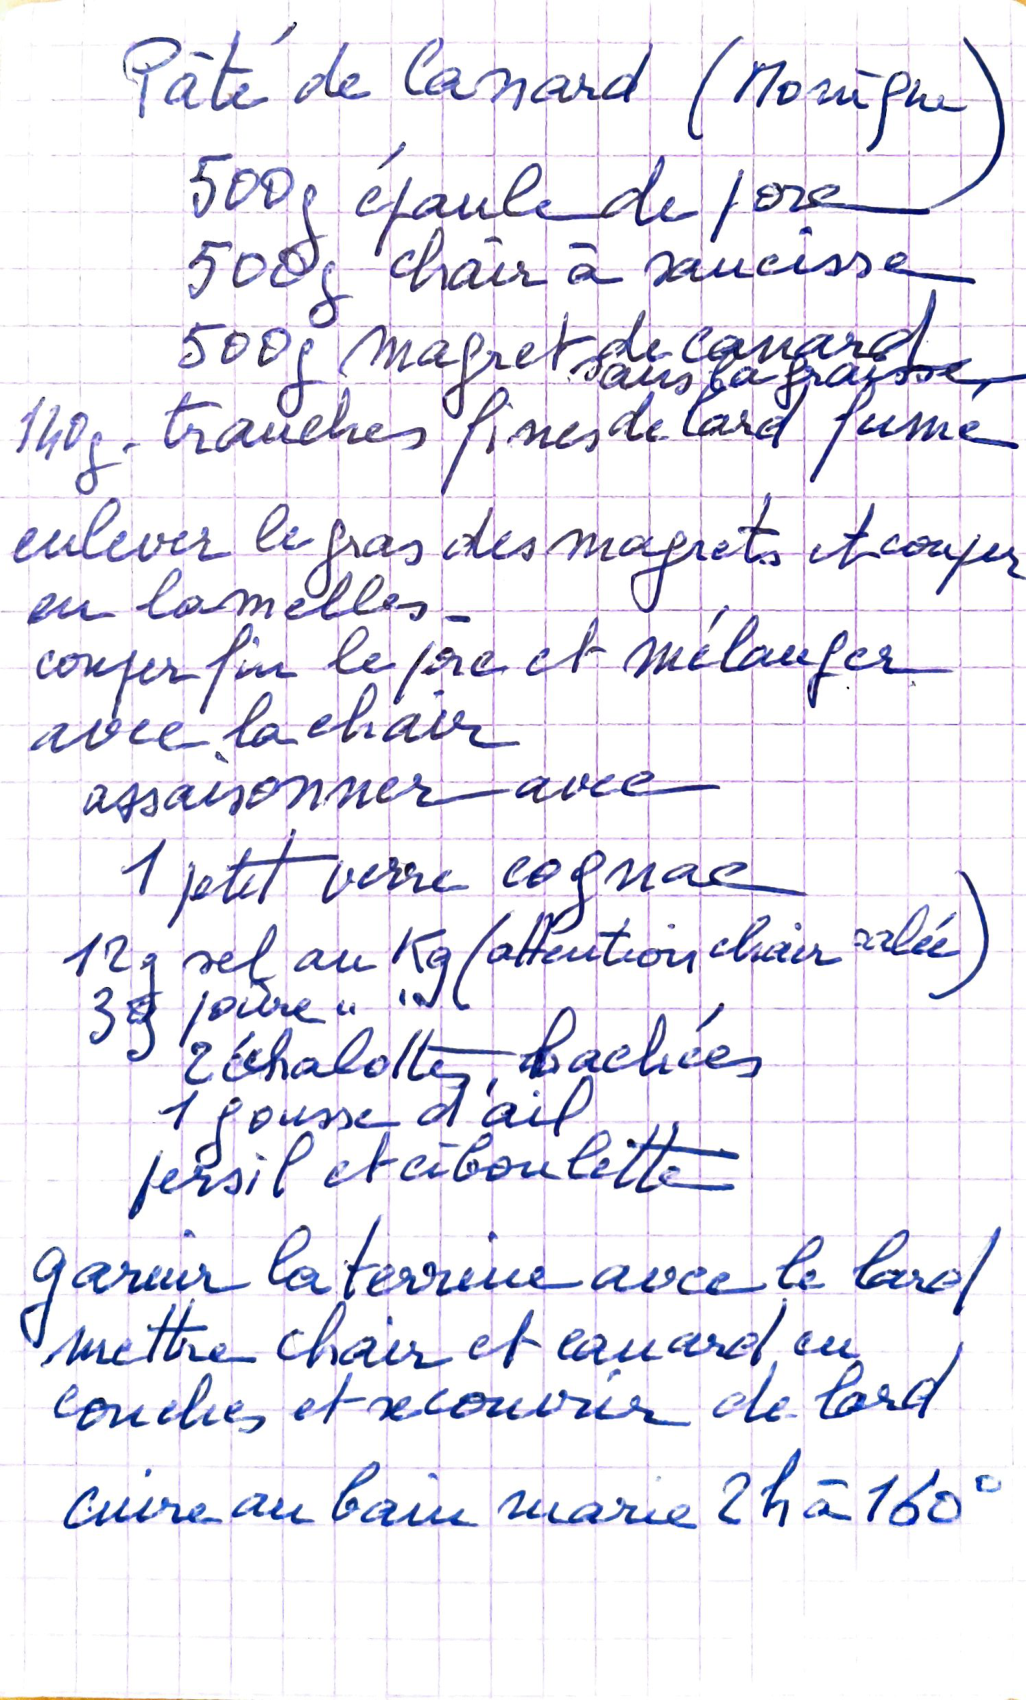 Pâté de Canard (Monique)
500g épaule de porc
500g chair à saucisse
500g magret de canard
sans la graisse
140g - tranches fines de lard fumé
enlever le gras des magrets et couper
en lamelles
couper fin le porc et mélanger
avec la chair
assaisonner avec
1 petit verre cognac
12g sel au Kg (attention chair salée)
3g poivre " "
2 échalottes hachées
1 gousse d'ail
persil et ciboulette
garnir la terrine avec le lard
mettre chair et canard en
couches et recouvrir de lard
cuire au bain marie 2h à 160°